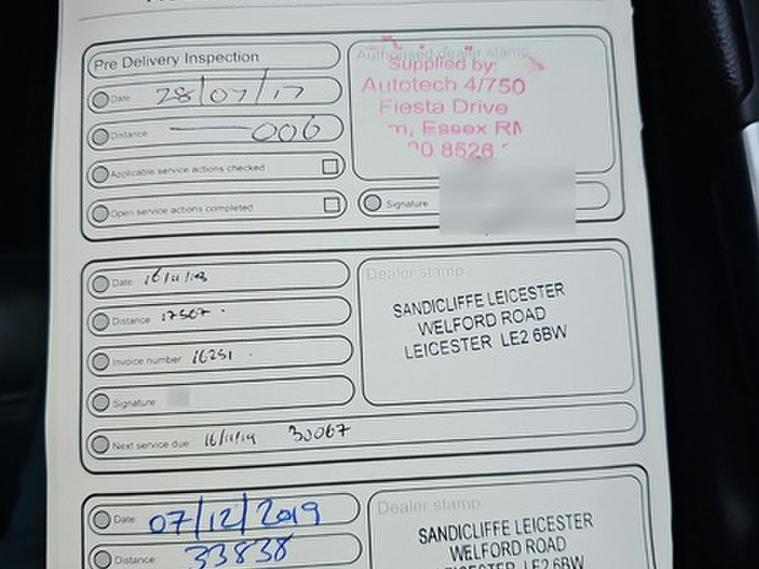 Pre Delivery Inspection
Authorised dealer stamp
Date: 28/07/17
Supplied by:
Autotech 4/750
Fiesta Drive
Distance: 006
m, Essex RM
Applicable service actions checked
20 8526
Open service actions completed
Signature
Date: 16/11/18
Dealer stamp
Distance: 17567
SANDICLIFFE LEICESTER
WELFORD ROAD
LEICESTER LE2 6BW
Invoice number 16251
Signature
Next service due 16/11/19 30067
Date: 07/12/2019
Dealer stamp
Distance: 33838
SANDICLIFFE LEICESTER
WELFORD ROAD
LEICESTER LE2 6BW